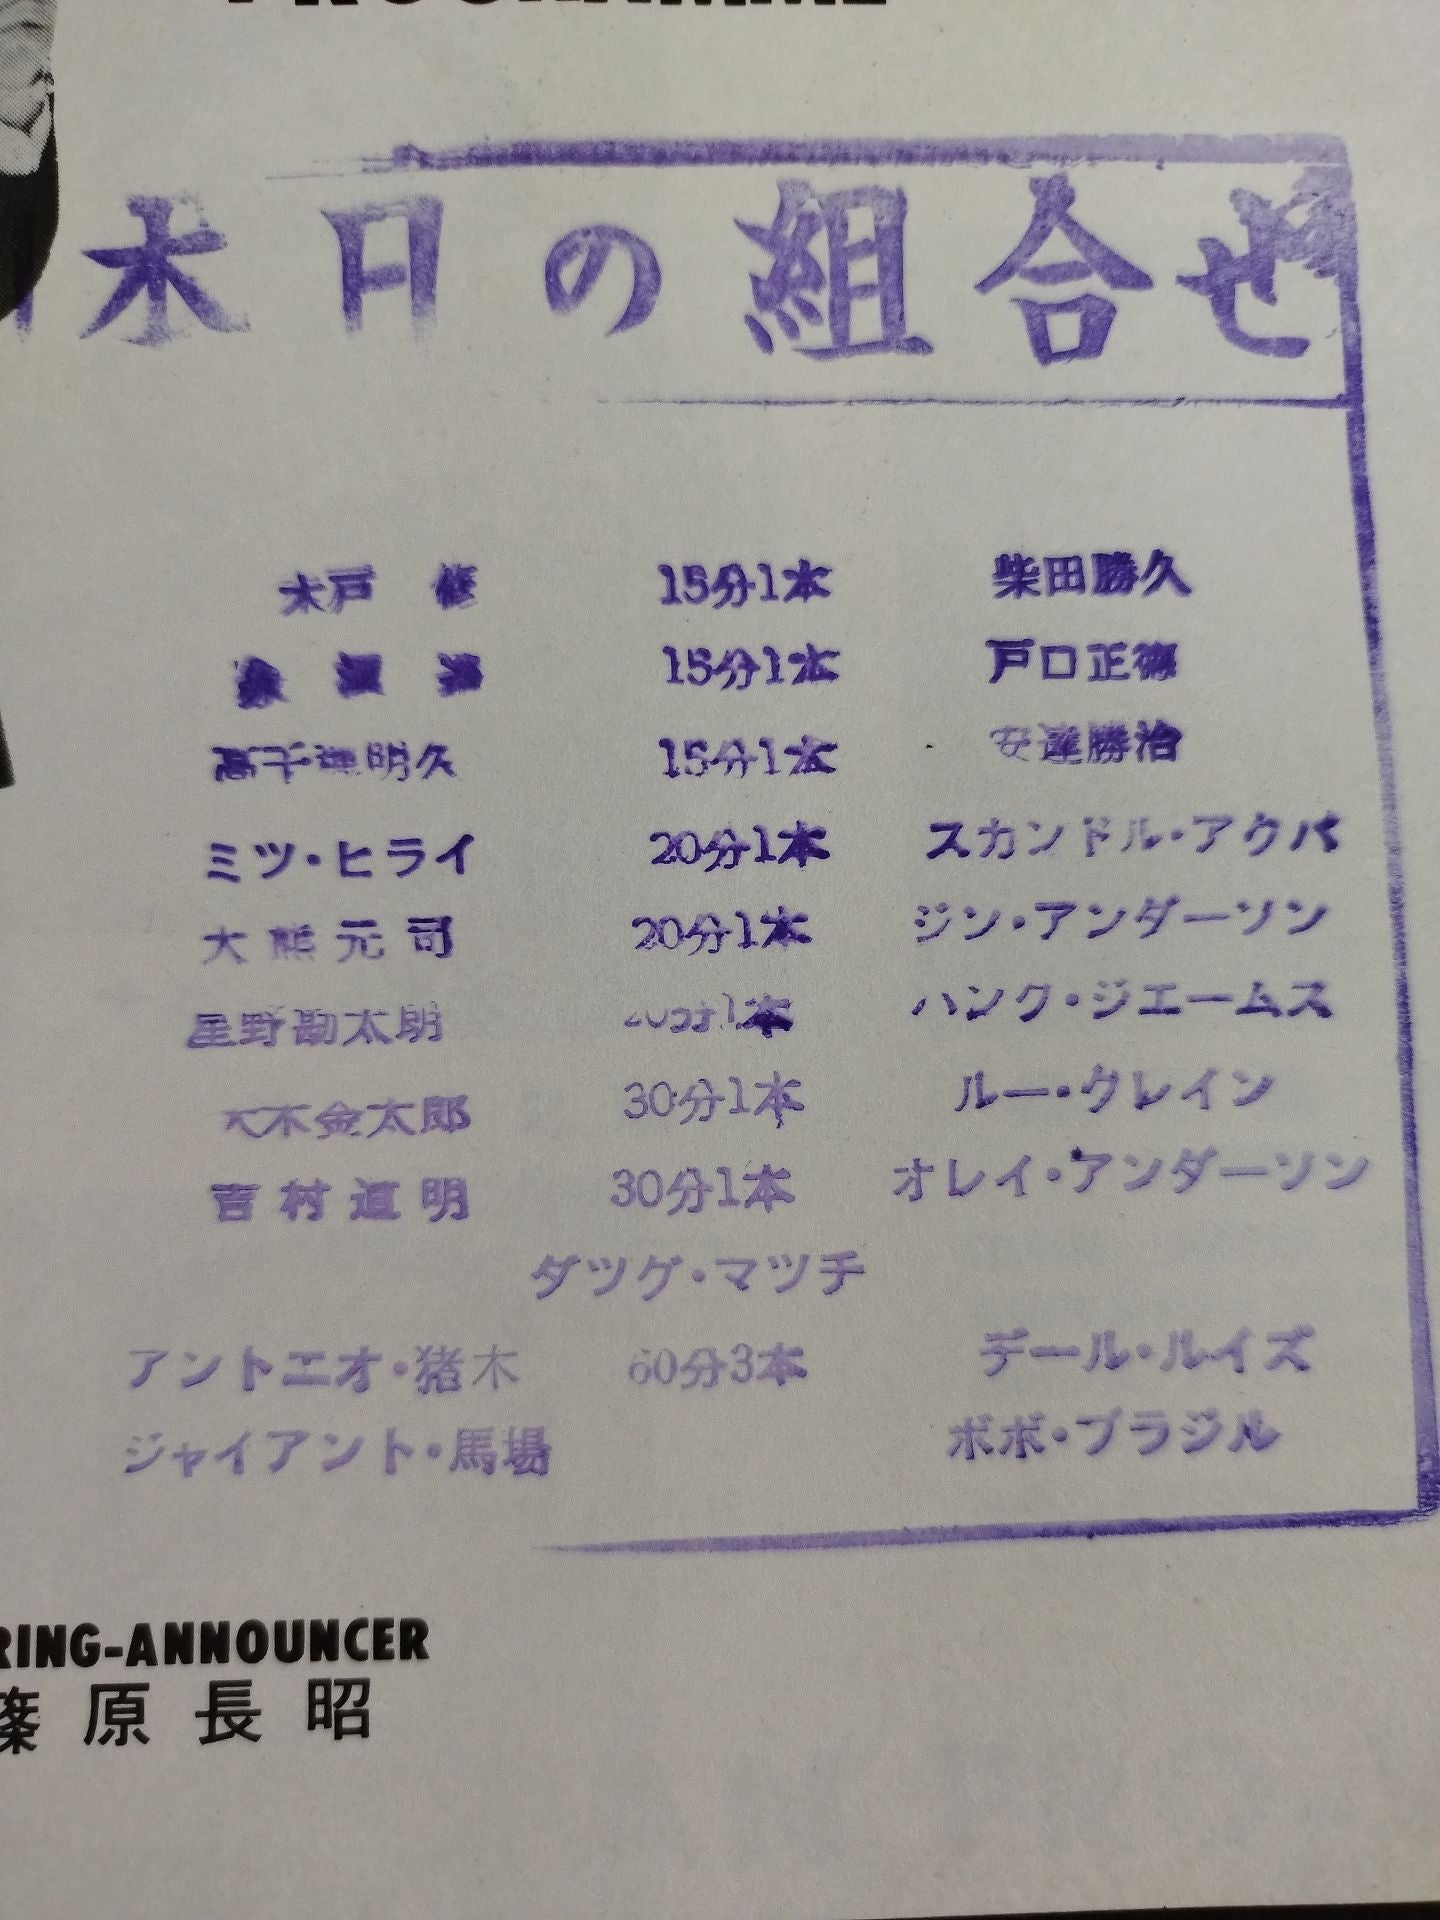 PROGRAMME
本日の組合せ
木戸 修 15分1本 柴田勝久
15分1本 戸口正徳
高千穂明久 15分1本 安達勝治
ミツ・ヒライ 20分1本 スカンドル・アクバ
大熊元司 20分1本 ジン・アンダーソン
星野勘太朗 20分1本 ハンク・ジエームス
大木金太郎 30分1本 ルー・クレイン
吉村道明 30分1本 オレイ・アンダーソン
ダツグ・マツチ
アントニオ・猪木 60分3本 デール・ルイズ
ジャイアント・馬場 ボボ・ブラジル
RING-ANNOUNCER
篠原長昭